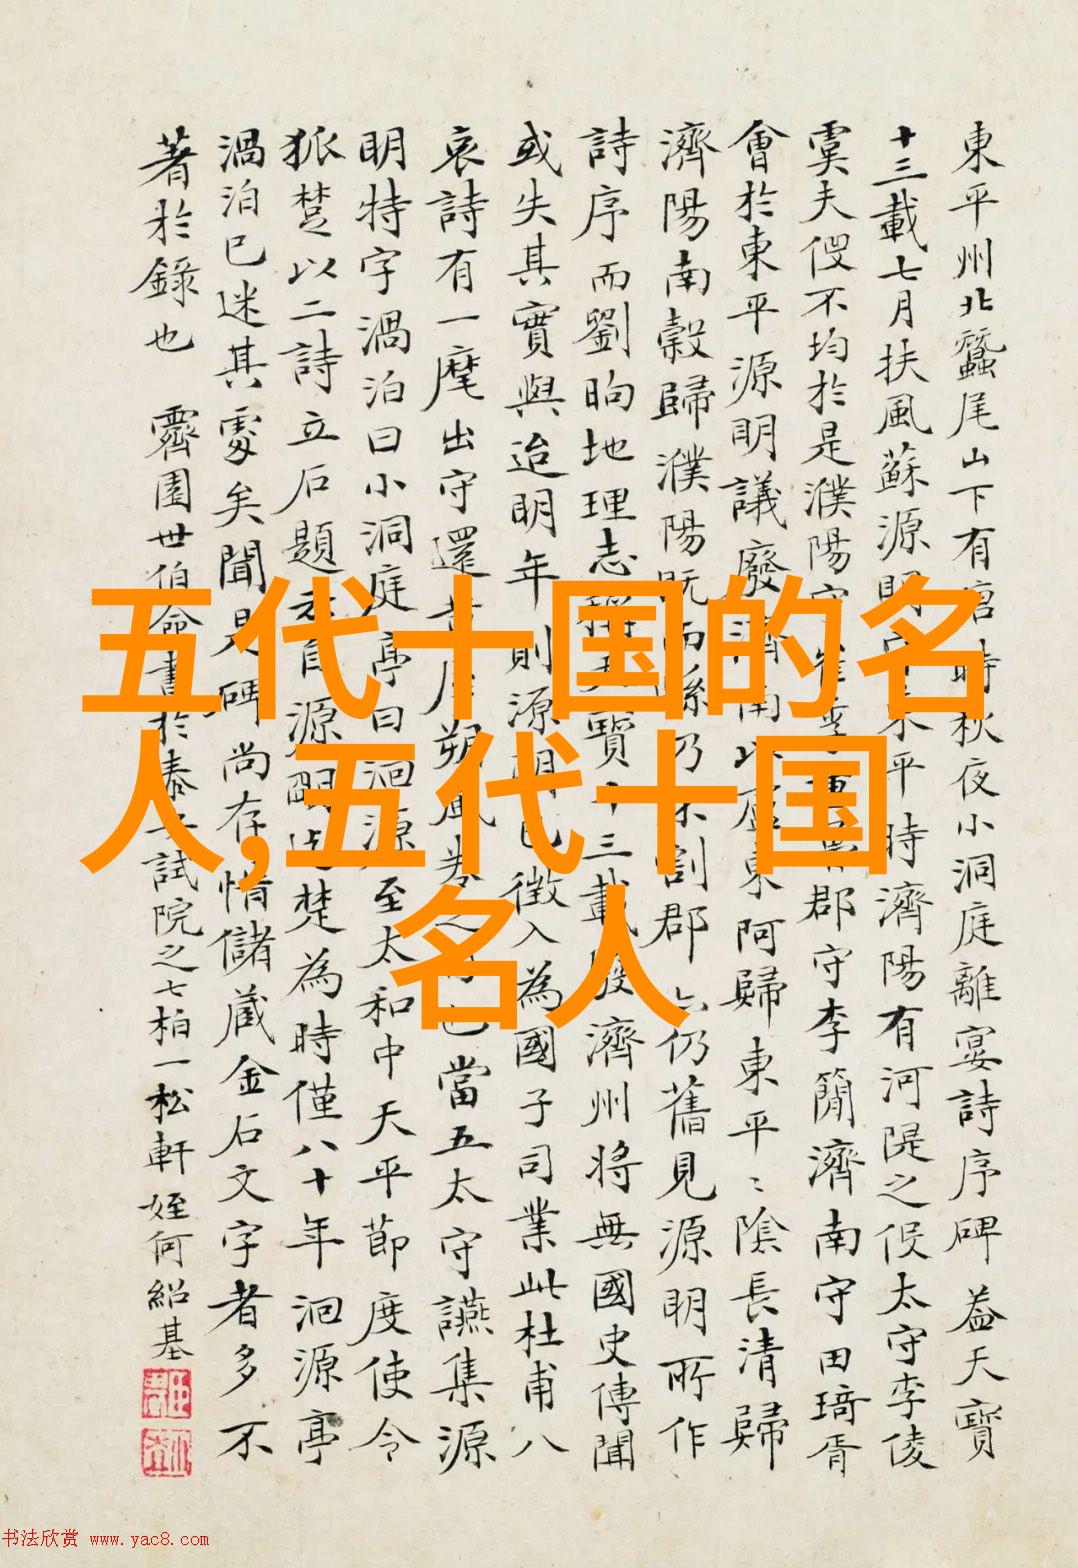 東平州北蠶尾山下有唐時秋夜小洞庭離宴詩序碑葢天寶
十三載七月扶風蘇源明平時濟陽有河隄之役太守李倰
虞夫役不均於是濮陽守崔季郡守李簡濟南守田琦胥
會於東平源明議廢濟南以盧東阿歸東平〻陰長清歸
濟陽南穀歸濮陽既而乃不割郡亦仍舊見源明所作
詩序而劉昫地理志稱天寶十三載廢濟州將無國史傳聞
或失其實與迨明年則源明已徵入為國子司業此杜甫八
哀詩有一麾出守還黃屋朔風卷之句也當五太守讌集源
明特字渦泊曰小洞庭亭曰洄源至太和中天平節度使令
狐楚以二詩立石題自源明楚為時僅八十年洄源亭
渦泊已迷其處矣聞是碑尚存惜儲藏金石文字者多不
著於錄也 霽園世伯命書於泰安試院之七柏一松軒姪何紹基
五代十国的名
人,五代十国
名人
书法欣赏 www.yac8.com